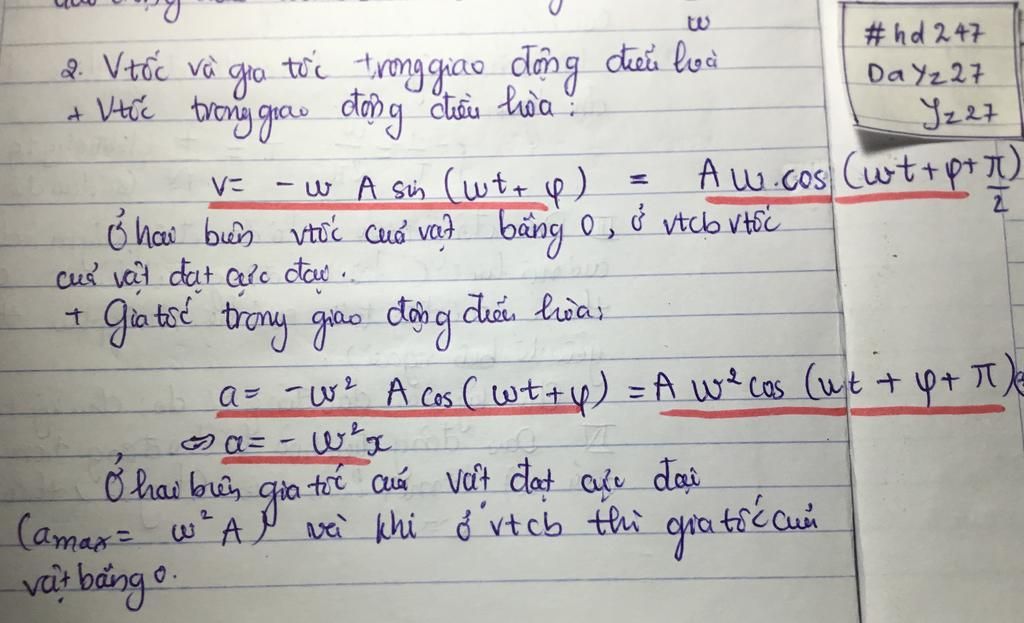 w
#hd247
DaYz27
Yz27
2. Vtốc và gia tốc trong giao động điều hoà
+ Vtốc trong giao động điều hòa:
v= -w A sin (wt+φ) = A w.cos (wt+φ+π/2)
Ở hai biên vtốc cuả vật bằng 0, ở vtcb vtốc
cuả vật đạt cực đại.
+ Gia tốc trong giao động điều hòa:
a= -w² A cos(wt+φ) = A w² cos (wt + φ+ π)
⇔ a= - w²x
Ở hai biên gia tốc cuả vật đạt cực đại
(amax= w²A) và khi ở vtcb thì gia tốc cuả
vật bằng 0.